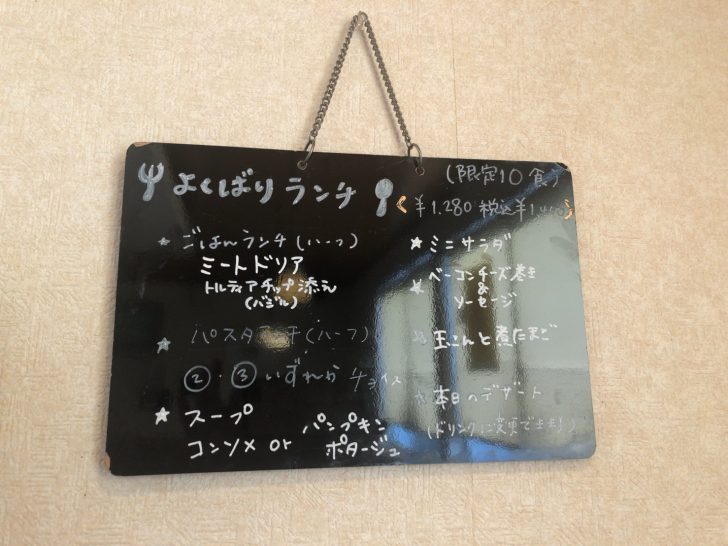 よくばり ランチ
(限定10食)
¥1,280 税込¥1,400
★ ごはんランチ(ハーフ)
ミートドリア
トルティアチップ添え
(バジル)
★ パスタランチ(ハーフ)
②・③いずれか チョイス
★ スープ
コンソメ or パンプキンポタージュ
★ ミニサラダ
★ ベーコンチーズ巻き
&
ソーセージ
★ 玉こんと煮たまご
★ 本日のデザート
(ドリンクに変更できます)